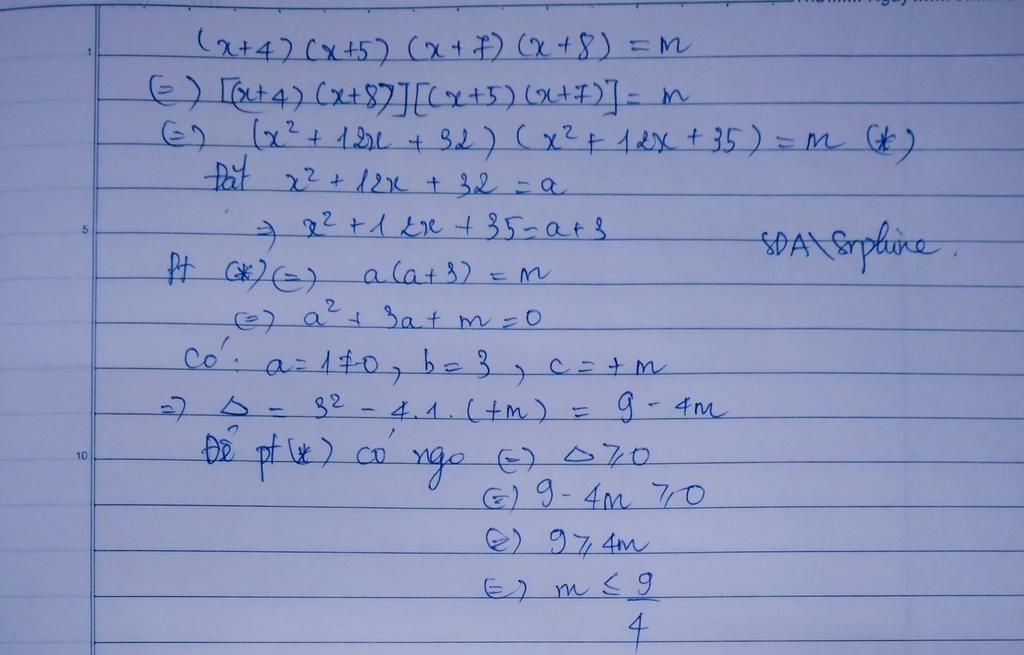 (x+4) (x+5) (x+7) (x+8) = m
(=) [(x+4) (x+8)][(x+5) (x+7)] = m
(=) (x² + 12x + 32) (x² + 12x + 35) = m (*)
Đặt x² + 12x + 32 = a
=> x² + 12x + 35 = a+3
SDA\Srphine.
Pt (*) (=) a(a+3) = m
(=) a² + 3a + m = 0
Có: a = 1 ≠ 0, b = 3, c = +m
=> Δ = 3² - 4.1.(+m) = 9 - 4m
Để pt (*) có ngo (=) Δ ≥ 0
(=) 9 - 4m ≥ 0
(=) 9 ≥ 4m
(=) m ≤ 9/4